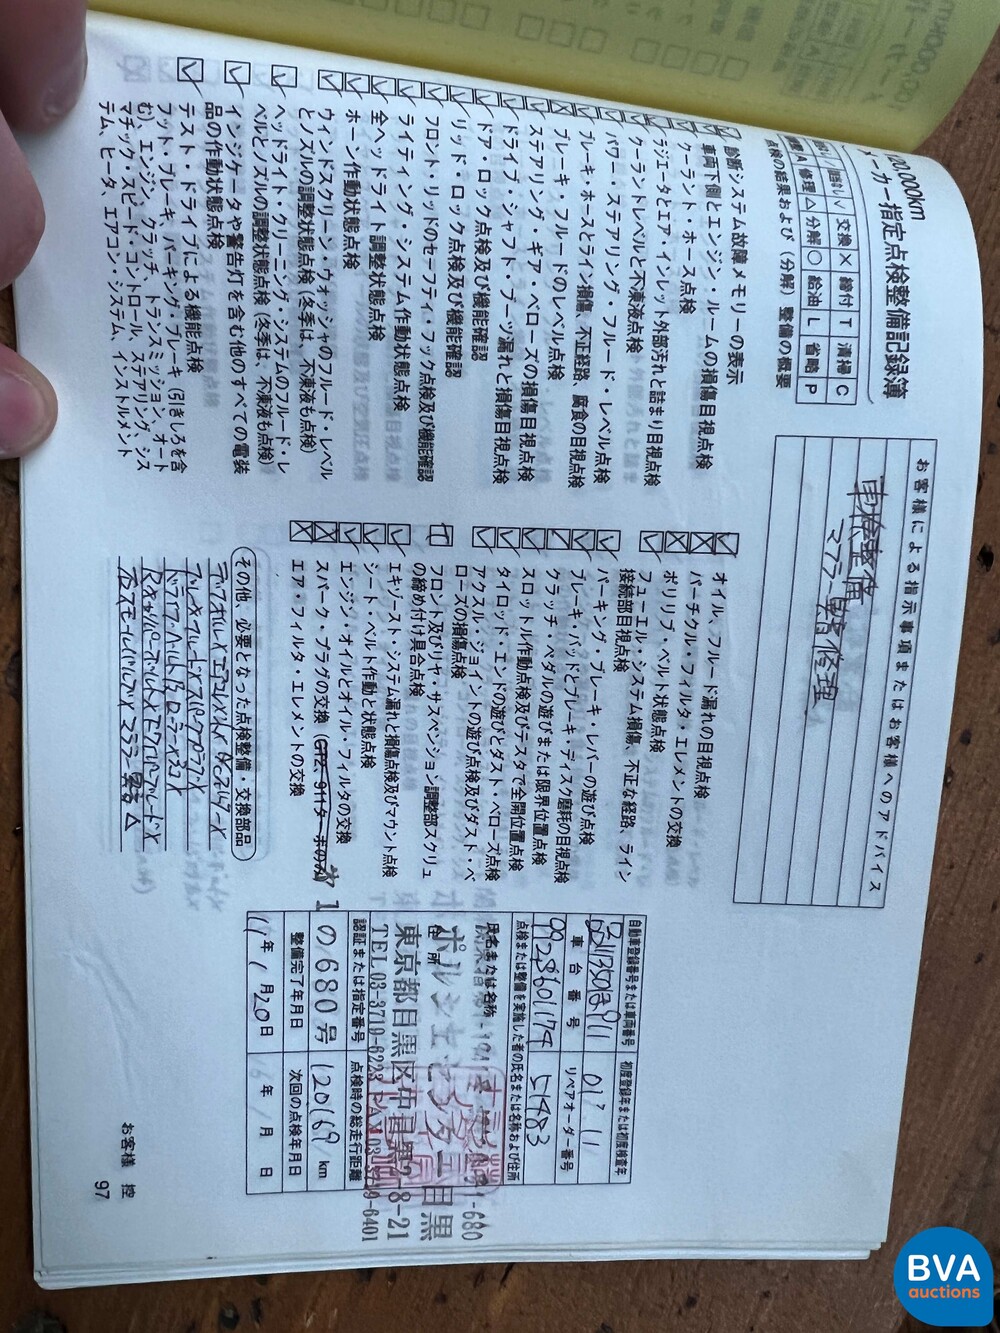 120,000km
メーカー指定点検整備記録簿
点検 レ 交換 × 締付 T 清掃 C
調整 A 修理 △ 分解 ○ 給油 L 省略 P
点検の結果および（分解）整備の概要
診断システム故障メモリーの表示
車両下側とエンジン・ルームの損傷目視点検
クーラント・ホース点検
ラジエータとエア・インレット外部汚れと詰まり目視点検
クーラントレベルと不凍液点検
パワー・ステアリング・フルード・レベル点検
ブレーキ・ホースとライン損傷、不正経路、腐食の目視点検
ブレーキ・フルードのレベル点検
ステアリング・ギア・ベローズの損傷目視点検
ドライブ・シャフト・ブーツ漏れと損傷目視点検
ドア・ロック点検及び機能確認
リッド・ロック点検及び機能確認
フロント・リッドのセーフティ・フック点検及び機能確認
ライティング・システム作動状態点検
全ヘッドライト調整状態点検
ホーン作動状態点検
ウィンドスクリーン・ウォッシャのフルード・レベル
とノズルの調整状態点検（冬季は、不凍液も点検）
ヘッドライト・クリーニング・システムのフルード・レ
ベルとノズルの調整状態点検（冬季は、不凍液も点検）
インジケータや警告灯を含む他のすべての電装
品の作動状態点検
テスト・ドライブによる機能点検
フット・ブレーキ、パーキング・ブレーキ（引きしろを含
む）、エンジン、クラッチ、トランスミッション、オート
マチック・スピード・コントロール、ステアリング、シス
テム、ヒータ、エアコン・システム、インストルメント
お客様による指示事項またはお客様へのアドバイス
車検整備
マフラー異音修理
オイル、フルード漏れの目視点検
パーチクル・フィルタ・エレメントの交換
ポリリブ・ベルト状態点検
フューエル・システム損傷、不正な経路、ライン
接続部目視点検
パーキング・ブレーキ・レバーの遊び点検
ブレーキ・パッドとブレーキ・ディスク磨耗の目視点検
クラッチ・ペダルの遊びまたは限界位置点検
スロットル作動点検及びテスタで全開位置点検
タイロッド・エンドの遊びとダスト・ベローズ点検
アクスル・ジョイントの遊び点検及びダスト・ベ
ローズの損傷点検
フロント及びリヤ・サスペンション調整部スクリュ
の締め付け具合点検
エキゾースト・システム漏れと損傷点検及びマウント点検
シート・ベルト作動と状態点検
エンジン・オイルとオイル・フィルタの交換
スパーク・プラグの交換（GT2、911ターボのみ）
エア・フィルタ・エレメントの交換
その他、必要となった点検整備・交換部品
自動車登録番号または車両番号
初度登録年または初度検査年
車台番号
リペアオーダー番号
51483
点検または整備を実施した者の氏名または名称および住所
氏名または名称
ポルシェセンター目黒
住所
東京都目黒区中目黒2-8-21
TEL 03-3719-6223 FAX 03-3719-6401
認証または指定番号
点検時の総走行距離
の680号
120169 km
整備完了年月日
次回の点検年月日
11年1月20日
年 月 日
お客様 控
97
BVA
auctions